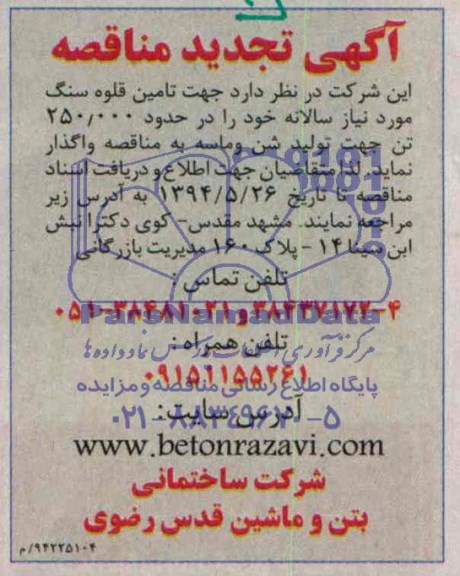 آگهی تجدید مناقصه
این شرکت در نظر دارد جهت تامین قلوه سنگ
مورد نیاز سالانه خود را در حدود ۲۵۰/۰۰۰
تن جهت تولید شن وماسه به مناقصه واگذار
نماید. لذا متقاضیان جهت اطلاع و دریافت اسناد
مناقصه تا تاریخ ۱۳۹۴/۵/۲۶ به آدرس زیر
مراجعه نمایند. مشهد مقدس- کوی دکترا نبش
ابن سینا ۱۴ - پلاک ۱۶۰ مدیریت بازرگانی
تلفن تماس :
۰۵۱-۳۸۴۸۱۰۲۱ و ۳۸۴۳۷۱۷۲-۴
ParsNamadData
تلفن همراه :
۰۹۱۵۱۱۵۵۲۶۱
پایگاه اطلاع رسانی مناقصه و مزایده
آدرس سایت :
۰۲۱-۸۸۳۴۹۶۷۰-۵
www.betonrazavi.com
شرکت ساختمانی
بتن و ماشین قدس رضوی
۹۴۲۲۵۱۰۴/م